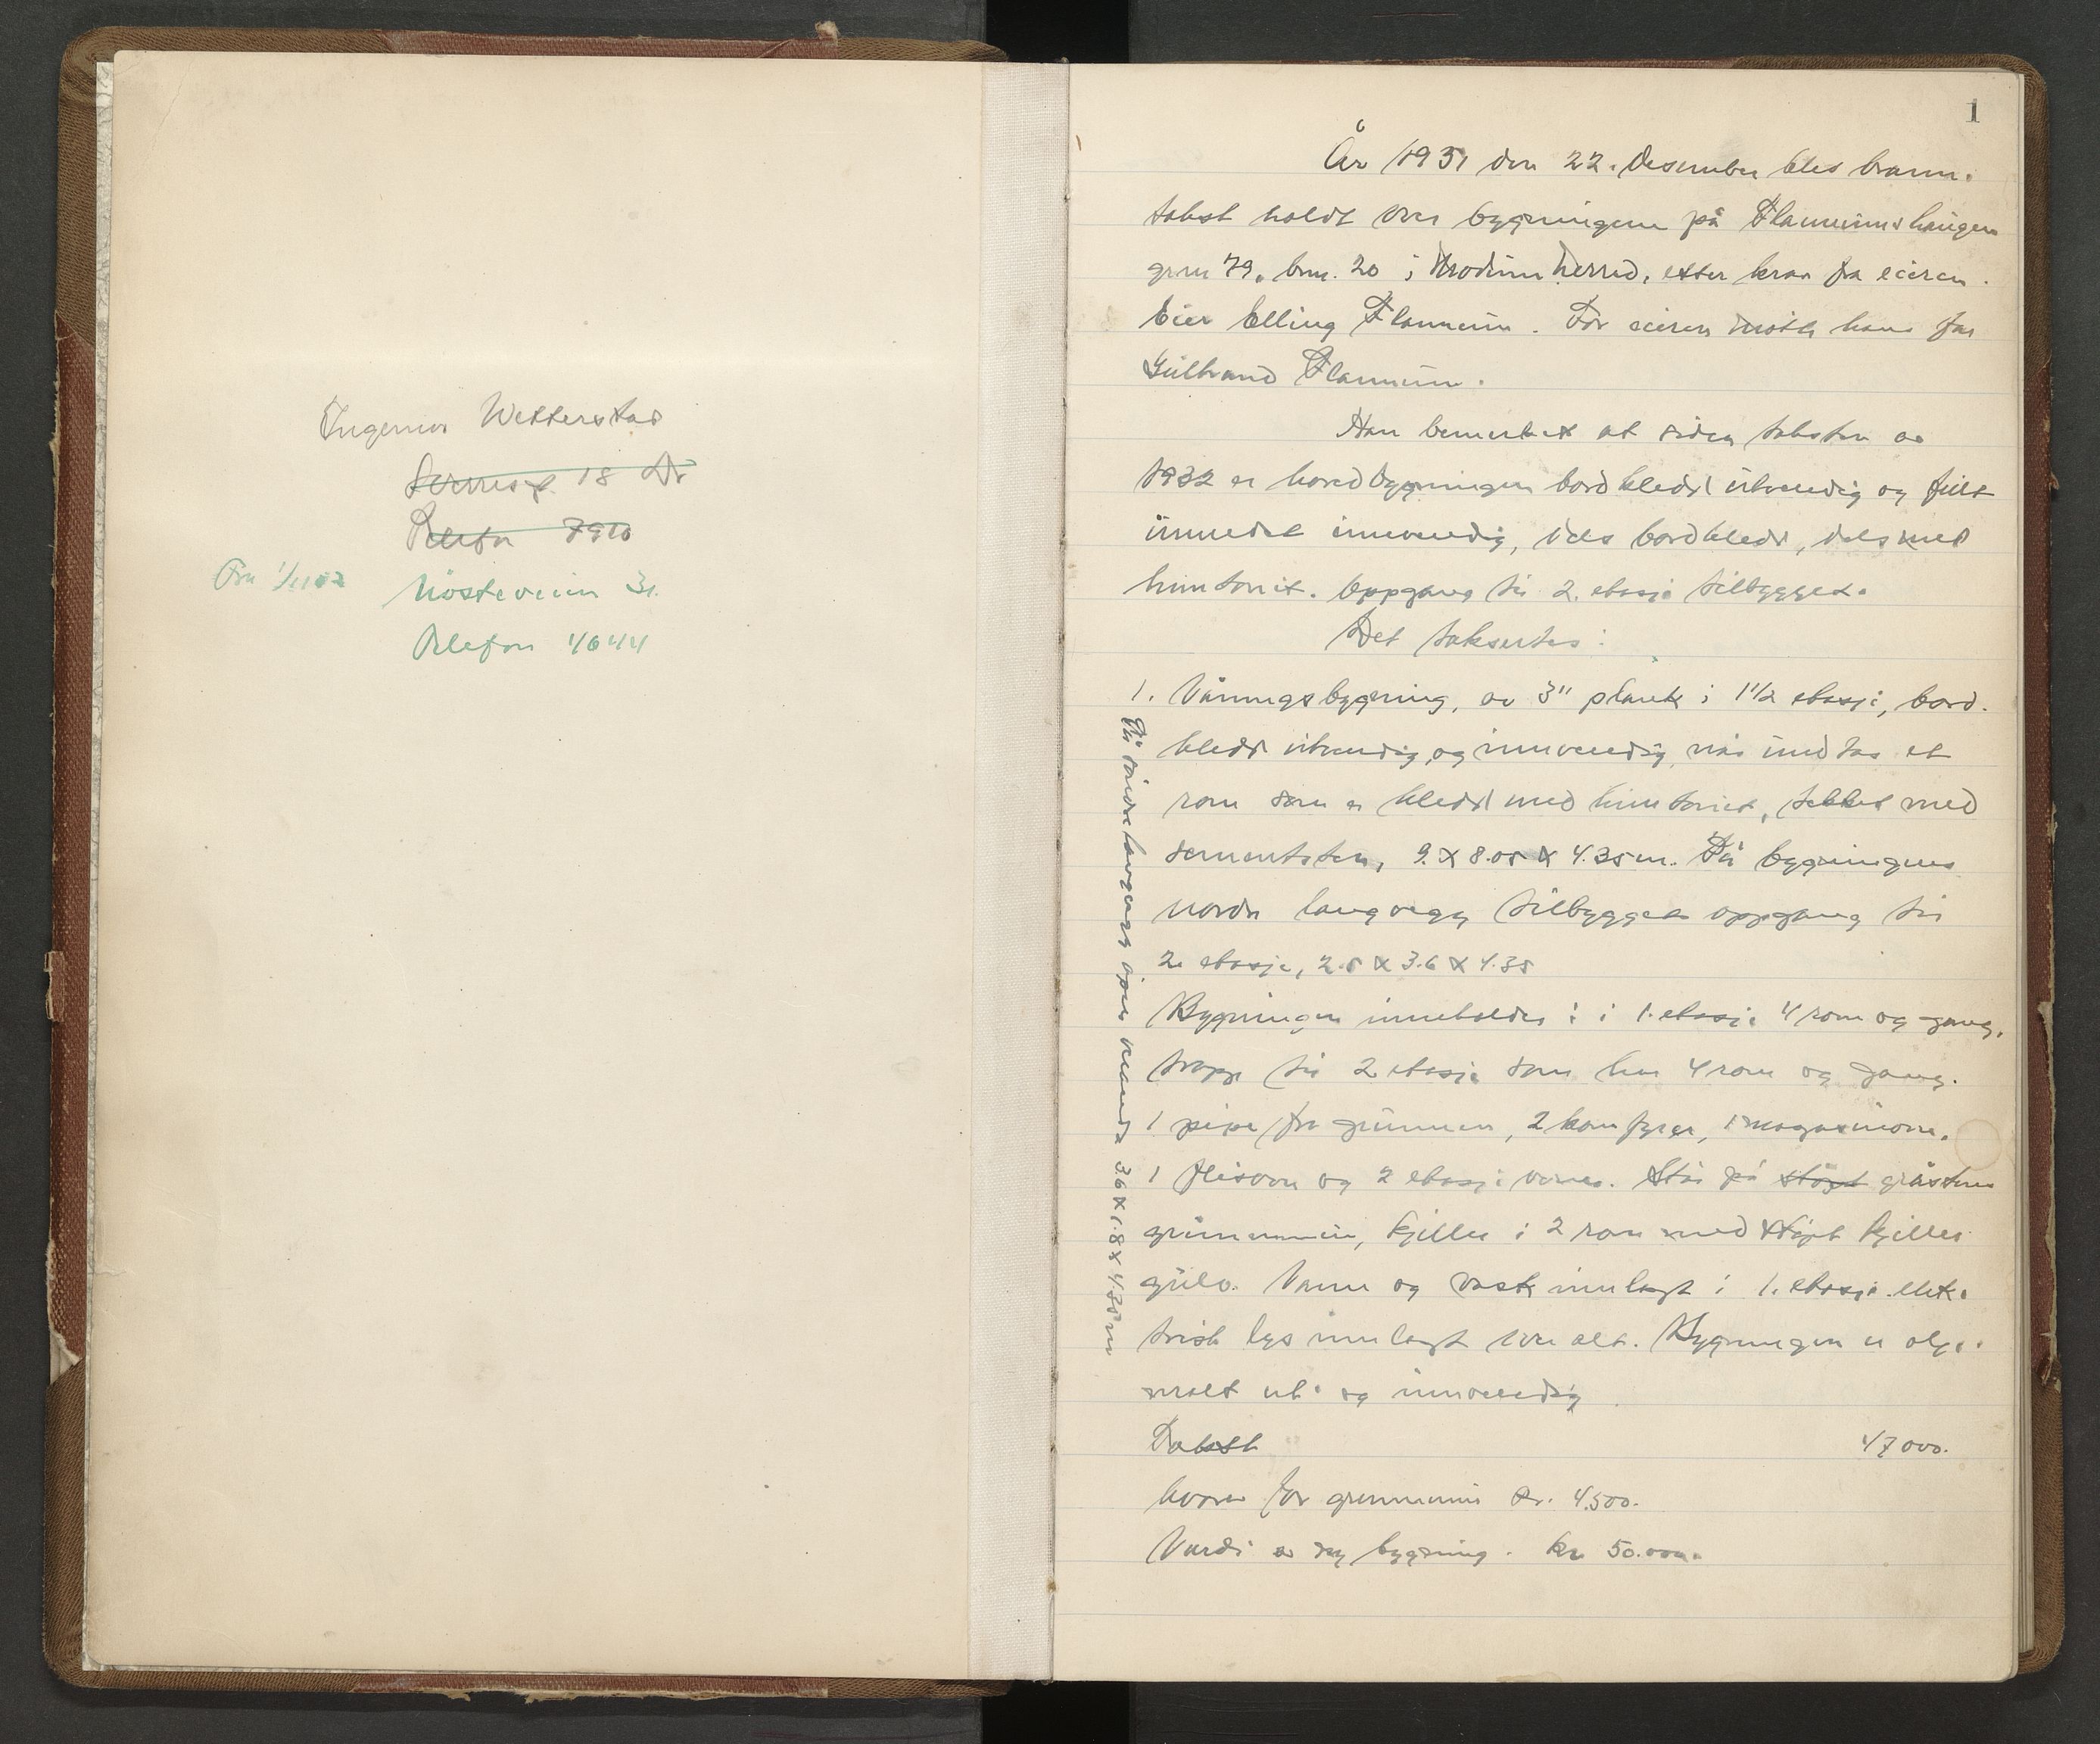 Ingeniør Wetterstad
18 Dr
Telefon 7910
Fra
Nøsteveien 31
Telefon 4644
1
År 1951 den 22. Desember blev brann-
takst holdt over bygningene på Flannumshaugen
grnr 79, brnr. 20 i Modum herred, etter krav fra eieren.
Eier Elling Flannum. For eieren møtte hans far
Gulbrand Flannum.
Han bemerket at siden taksten av
1932 er hovedbygningen bordkledd utvendig og fullt
innredet innvendig, dels bordkledd, dels med
huntonit. Oppgang til 2. etasje tilbygget.
Det taksertes:
1. Våningsbygning, av 3" plank i 1 1/2 etasje, bord-
kledd utvendig og innvendig, når unntas et
rom som er kledd med huntonit, tekket med
sementsten, 9. x 8.05 x 4.35 m. På bygningens
nordre langvegg tilbygget oppgang til
2. etasje, 2.5 x 3.6 x 4.35
På søndre langvegg åpen veranda 3.6 x 1.8 x 4.35 m
Bygningen inneholder: i 1. etasje 4 rom og gang,
trapp til 2 etasje som har 4 rom og gang.
1 pipe fra grunnen, 2 komfyrer, 1 magasinovn.
1 flisovn og 2 etasje ovner. Står på støpt gråstens
grunnmur, kjeller i 2 rom med støpt kjeller
gulv. Vann og vask innlagt i 1. etasje. elek-
trisk lys innlagt over alt. Bygningen er olje-
malt ut- og innvendig
Takst 47000.
hvorav for grunnmur kr. 4.500.
Verdi av ny bygning. kr 50.000.